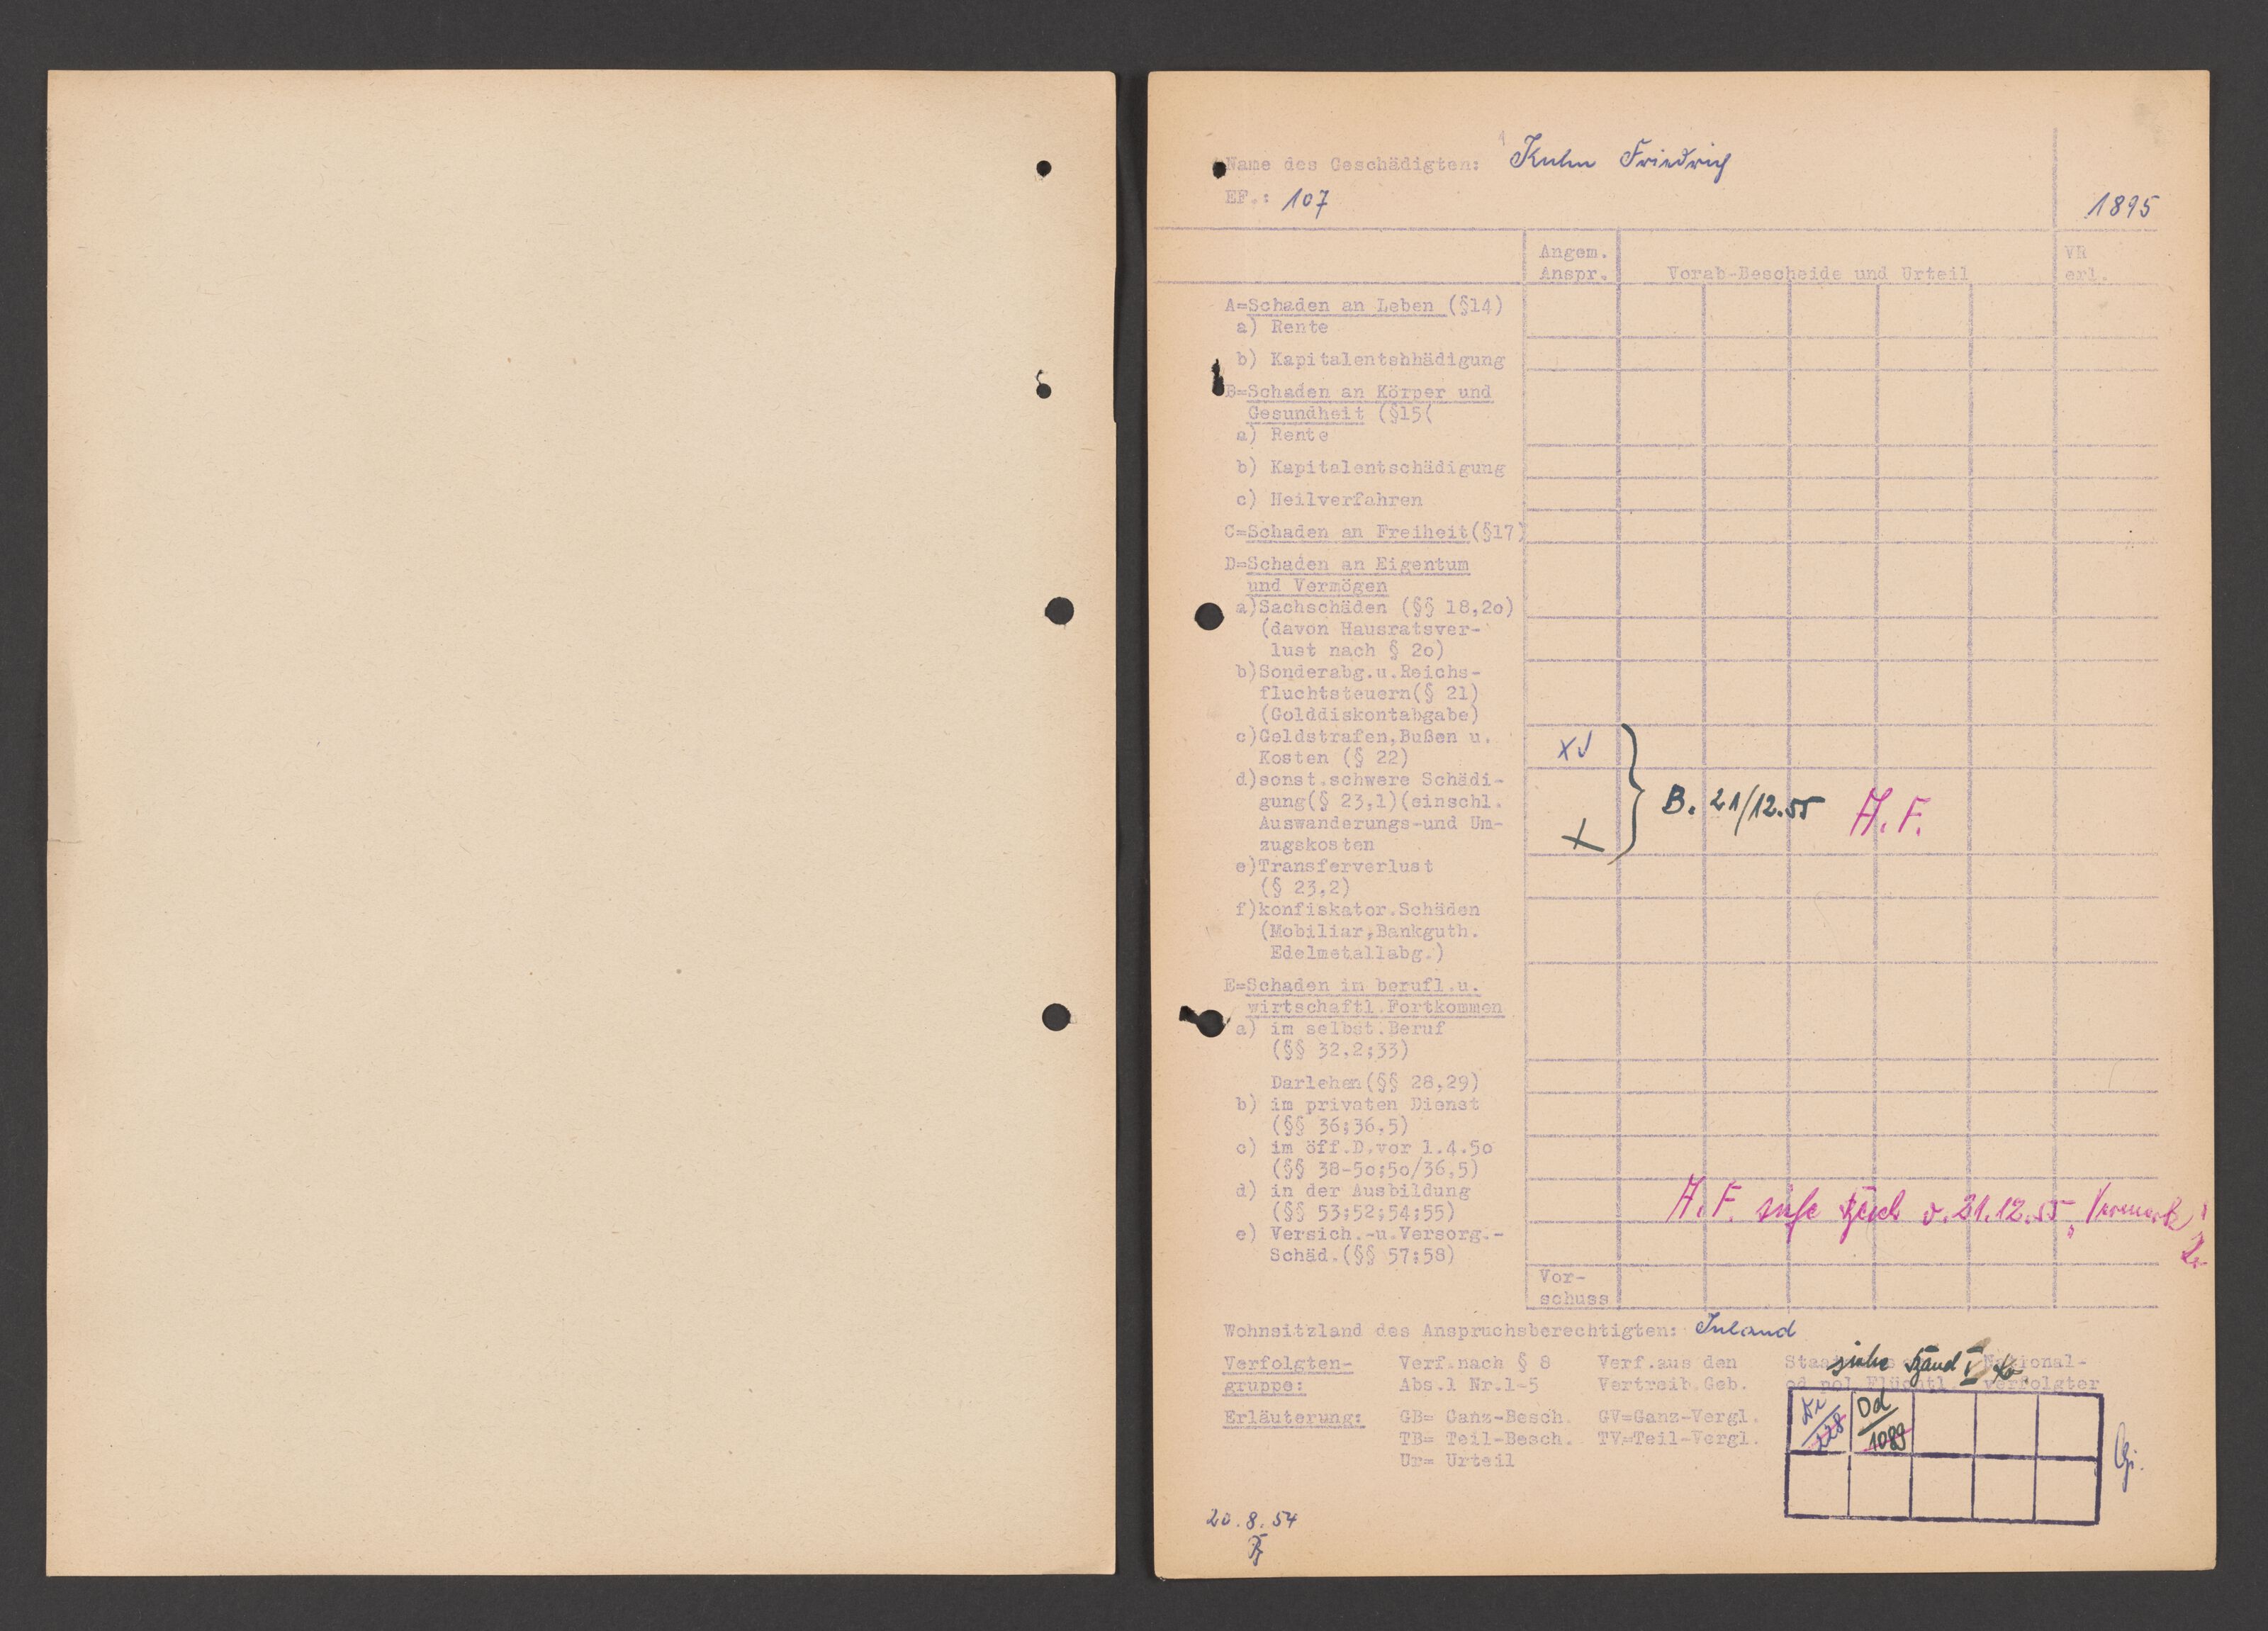 Name des Geschädigten: Kuhn Friedrich
EF.: 107
1895
Angem.
Anspr.
Vorab-Bescheide und Urteil
VR
erl.
A=Schaden an Leben (§14)
a) Rente
b) Kapitalentshhädigung
B=Schaden an Körper und
Gesundheit (§15(
a) Rente
b) Kapitalentschädigung
c) Heilverfahren
C=Schaden an Freiheit(§17)
D=Schaden an Eigentum
und Vermögen
a)Sachschäden (§§ 18,2o)
(davon Hausratsver-
lust nach § 2o)
b)Sonderabg.u.Reichs-
fluchtsteuern(§ 21)
(Golddiskontabgabe)
c)Geldstrafen,Bußen u.
Kosten (§ 22)
X
d)sonst.schwere Schädi-
gung(§ 23,1)(einschl.
Auswanderungs-und Um-
zugskosten
X
B. 21/12.55 A.F.
e)Transferverlust
(§ 23,2)
f)konfiskator.Schäden
(Mobiliar,Bankguth.
Edelmetallabg.)
E=Schaden im berufl.u.
wirtschaftl.Fortkommen
a) im selbst.Beruf
(§§ 32,2;33)
Darlehen(§§ 28,29)
b) im privaten Dienst
(§§ 36;36,5)
c) im öff.D.vor 1.4.5o
(§§ 38-5o;5o/36,5)
d) in der Ausbildung
(§§ 53;52;54;55)
A.F. siehe Besch v. 21.12.55 "Vermerk"
e) Versich.-u.Versorg.-
Schäd.(§§ 57;58)
Vor-
schuss
Wohnsitzland des Anspruchsberechtigten: Inland
siehe Band I
Verfolgten-
gruppe:
Verf.nach § 8
Abs.1 Nr.1-5
Verf.aus den
Vertreib.Geb.
National-
od pol Flüchtl
verfolgter
Erläuterung:
GB= Ganz-Besch.
GV=Ganz-Vergl.
TB= Teil-Besch.
TV=Teil-Vergl.
Ur= Urteil
228
Dd
1089
20.8.54